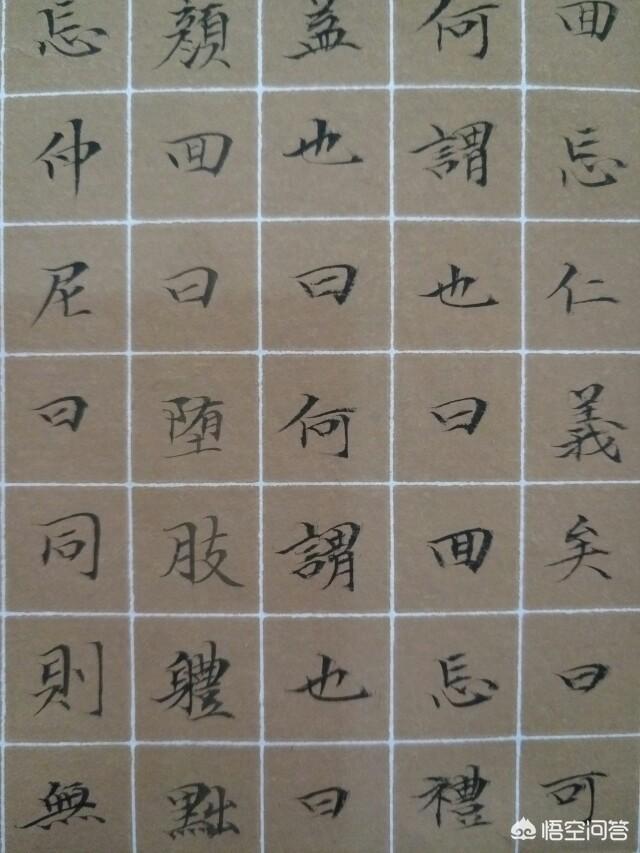 回忘仁義矣曰可
何謂也曰回忘禮
益也曰何謂也曰
顏回曰堕肢軆黜
忘仲尼曰同則無
悟空问答